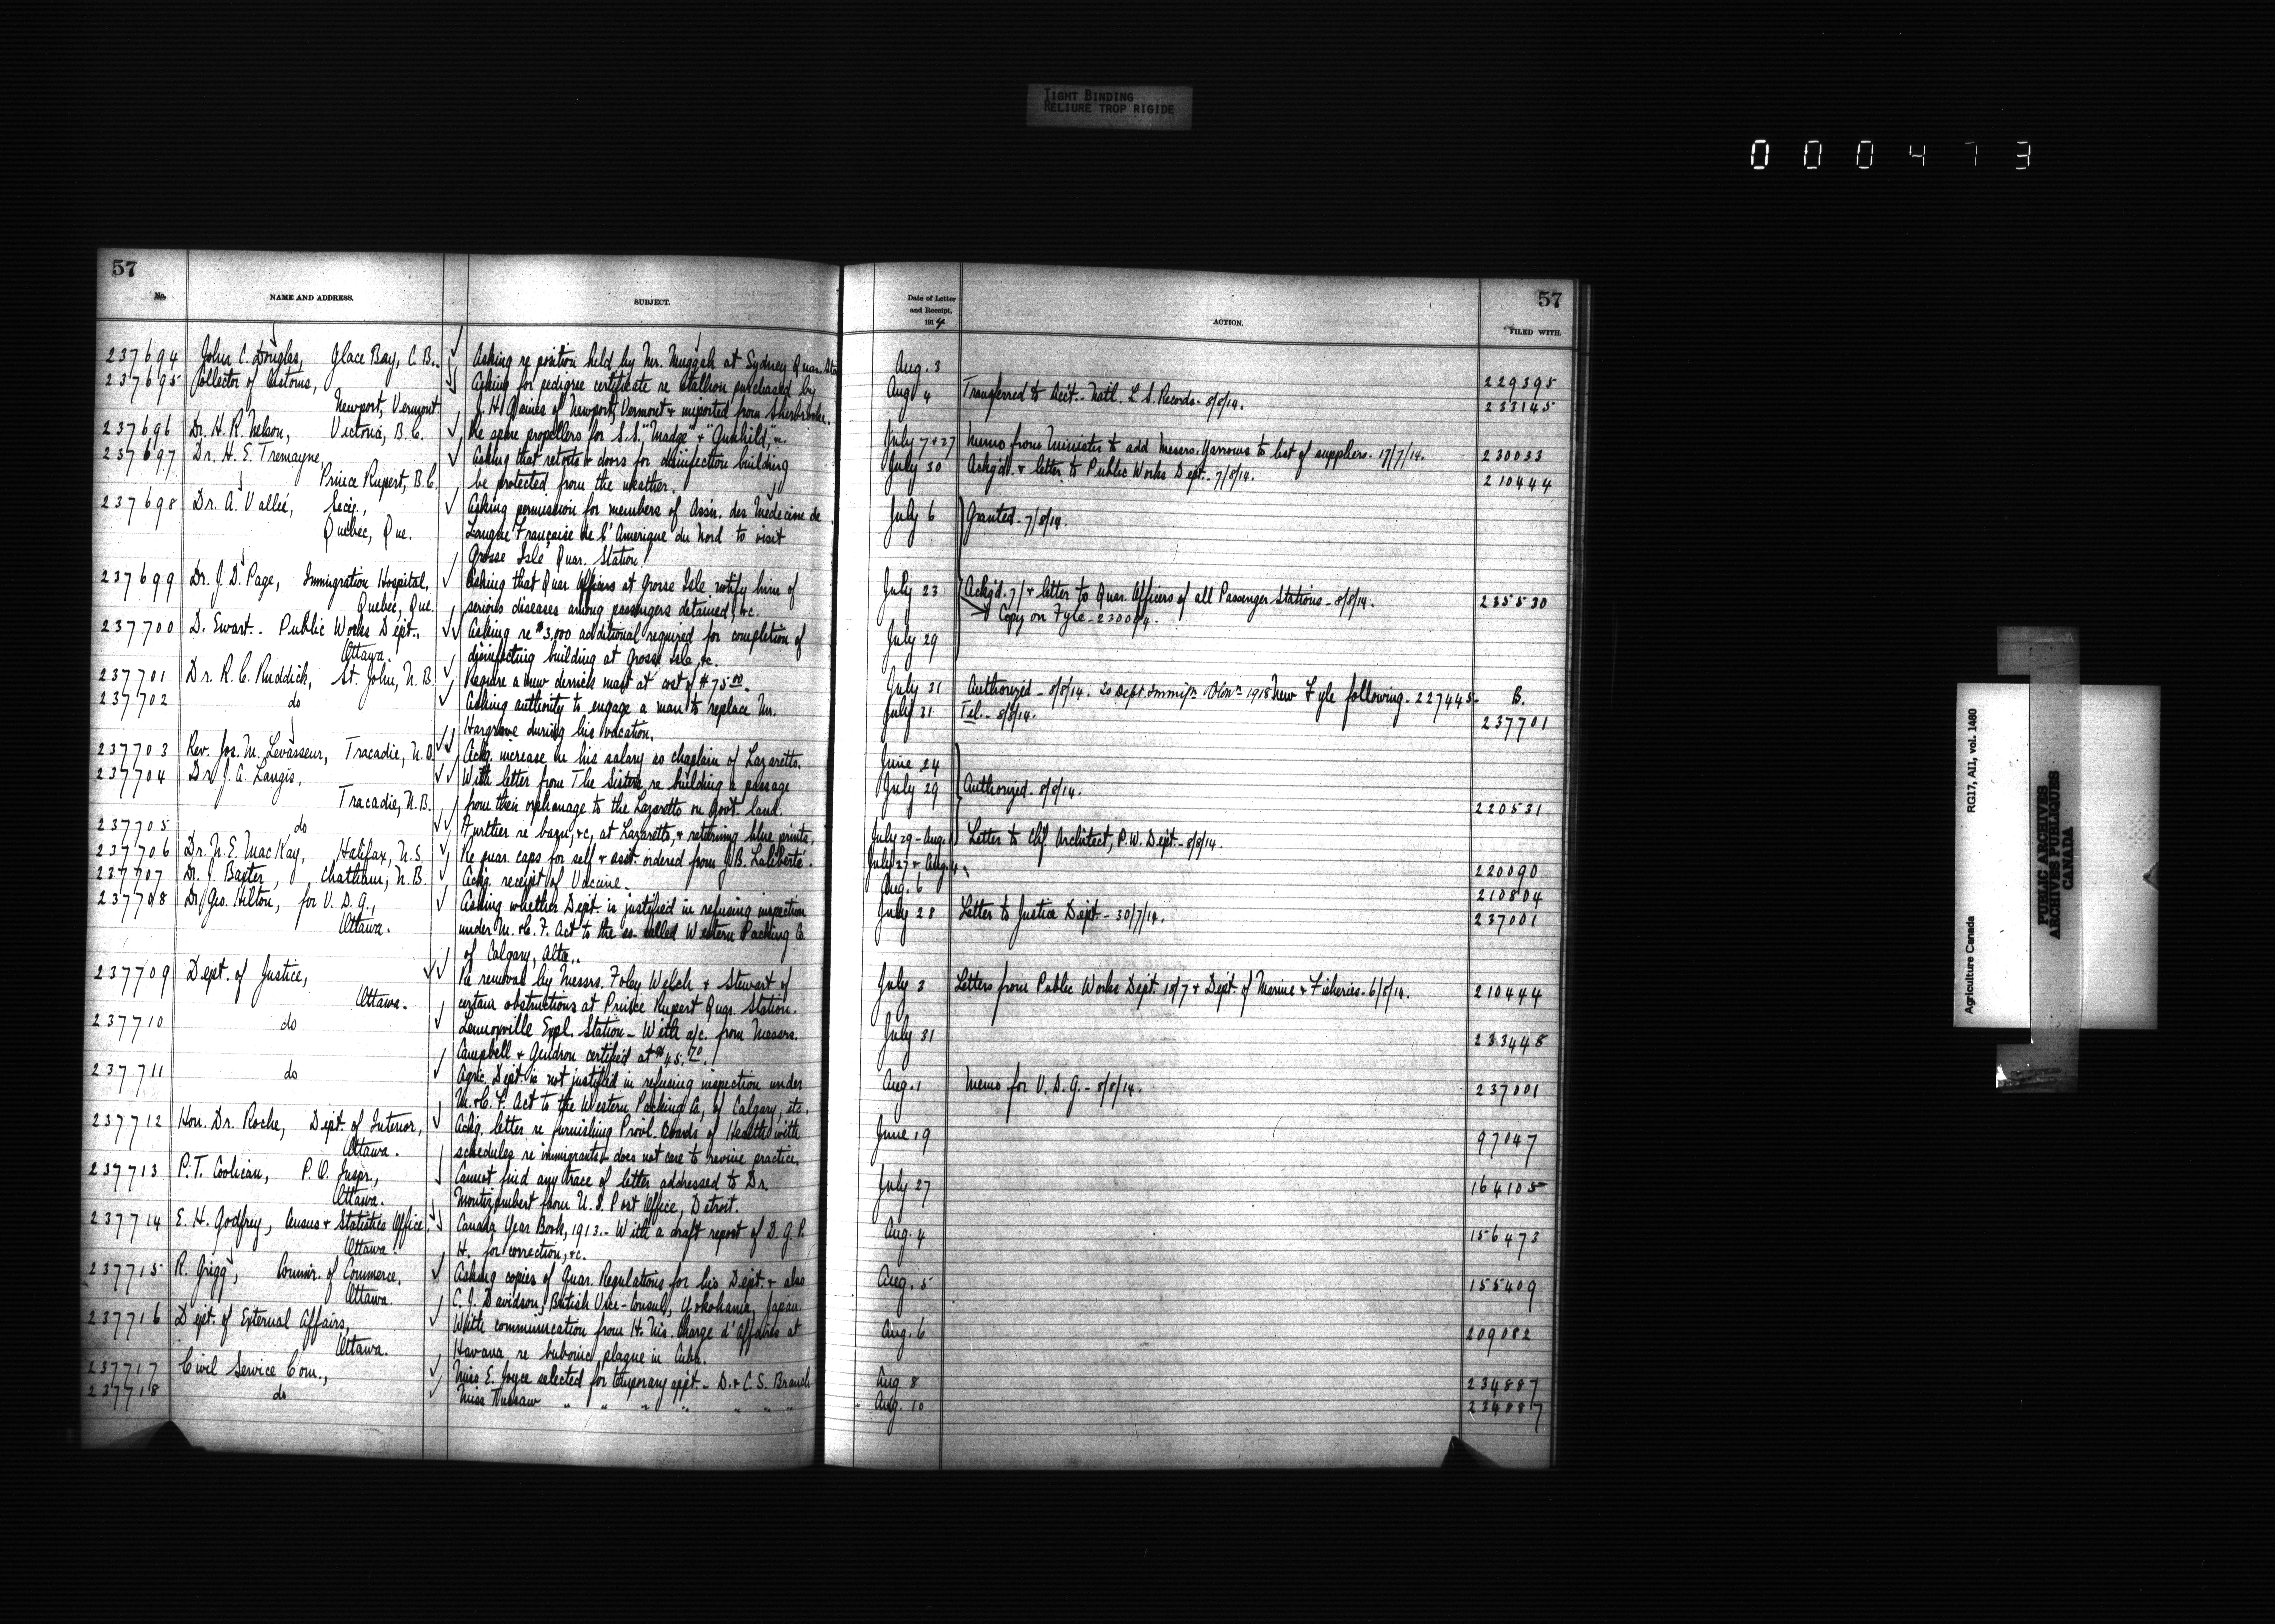 TIGHT BINDING
RELIURE TROP RIGIDE
000473
57
No. NAME AND ADDRESS. SUBJECT.
237694 John C. Douglas, Glace Bay, C.B. Asking re position held by Mr. Muggah at Sydney Quar. Sta
237695 Collector of Customs, Asking for pedigree certificate re stallion purchased by
Newport, Vermont. J. H. Gaines of Newport, Vermont & imported from Sherbrooke.
237696 Dr. H. R. Nelson, Victoria, B.C. Re spare propellers for S.S. "Madge" & "Gunhild," &c.
237697 Dr. H. E. Tremayne, Asking that retorts & doors for disinfection building
Prince Rupert, B.C. be protected from the weather.
237698 Dr. A. Vallée, Secy., Asking permission for members of Assn. des Medecine de
Quebec, Que. Langue Française de l'Amerique du Nord to visit
Grosse Isle Quar. Station.
237699 Dr. J. D. Page, Immigration Hospital, Asking that Quar. Officers at Grosse Isle notify him of
Quebec, Que. serious diseases among passengers detained, &c.
237700 D. Ewart. Public Works Dept., Asking re $3,000 additional required for completion of
Ottawa. disinfecting building at Grosse Isle, &c.
237701 Dr. R. C. Ruddick, St. John, N.B. Require a new derrick mast at cost of $75.00.
237702 do Asking authority to engage a man to replace Mr.
Hargrove during his vacation.
237703 Rev. Jos. M. Levasseur, Tracadie, N.B. Ackg. increase in his salary as chaplain of Lazaretto.
237704 Dr. J. A. Langis, With letter from The Sisters re building a passage
Tracadie, N.B. from their orphanage to the Lazaretto on Govt. land.
237705 do Further re &c, at Lazaretto, & returning blue prints.
237706 Dr. N. E. MacKay, Halifax, N.S. Re quar. caps for self & asst. ordered from J. B. Laliberté.
237707 Dr. J. Baxter, Chatham, N.B. Ackg. receipt of Vaccine.
237708 Dr. Geo. Hilton, for V. D. G., Asking whether Dept. is justified in refusing inspection
Ottawa. under M. & C. F. Act to the so-called Western Packing Co
of Calgary, Alta..
237709 Dept. of Justice, Re removal by Messrs. Foley Welch & Stewart of
Ottawa. certain obstructions at Prince Rupert Quar. Station.
237710 do Lennoxville Expl. Station - With a/c. from Messrs.
Campbell & Gendron certified at $45.70.
237711 do Agric. Dept. is not justified in refusing inspection under
M. & C. F. Act to the Western Packing Co, of Calgary, etc.
237712 Hon. Dr. Roche, Dept. of Interior, Ackg. letter re furnishing Provl. Boards of Health with
Ottawa. schedules re immigrants & does not care to revise practice.
237713 P. T. Coolican, P. O. Inspr., Cannot find any trace of letter addressed to Dr.
Ottawa. Montizambert from U. S. Post Office, Detroit.
237714 E. H. Godfrey, Census & Statistics Office, Canada Year Book, 1913 - With a draft report of D. G. P.
Ottawa. H. for correction, &c.
237715 R. Grigg, Commr. of Commerce, Asking copies of Quar. Regulations for his Dept. & also
Ottawa. C. J. Davidson, British Vice-Consul, Yokohama, Japan.
237716 Dept. of External Affairs, With communication from H. Mis. Charge d'Affaires at
Ottawa. Havana re bubonic plague in Cuba.
237717 Civil Service Com., Miss E. Joyce selected for temporary appt. - D. & C. S. Branch
237718 do Miss " " " " " " "
57
Date of Letter and Receipt, 1914 ACTION. FILED WITH.
Aug. 3 229395
Aug 4 Transferred to Acct. - Natl. L. S. Records - 8/8/14. 233145
July 7 & 27 Memo from Minister to add Messrs. Yarrows to list of suppliers. 17/7/14. 230033
July 30 Ackg'd. & letter to Public Works Dept. - 7/8/14. 210444
July 6 Granted. 7/8/14.
July 23 Ackg'd. 7/ & letter to Quar. Officers of all Passenger Stations - 8/8/14. 235530
Copy on Fyle - 230014.
July 29
July 31 Authorized - 8/8/14. 1918 New Fyle following - 227445- B.
July 31 Tel. - 8/8/14. 237701
June 24
July 29 Authorized. 8/8/14. 220531
July 29 - Aug. 1 Letter to Chf. Architect, P.W. Dept. - 8/8/14.
July 27 & Aug. 4 220090
Aug. 6 210804
July 28 Letter to Justice Dept. - 30/7/14. 237001
July 3 Letters from Public Works Dept. 18/7 & Dept. of Marine & Fisheries - 6/8/14. 210444
July 31 233448
Aug. 1 Memo for V. D. G. - 8/8/14. 237001
June 19 97047
July 27 164105
Aug. 4 156473
Aug. 5 155409
Aug. 6 209082
Aug. 8 234887
Aug. 10 234887
Agriculture Canada RG17, A11, vol. 1480
PUBLIC ARCHIVES
ARCHIVES PUBLIQUES
CANADA